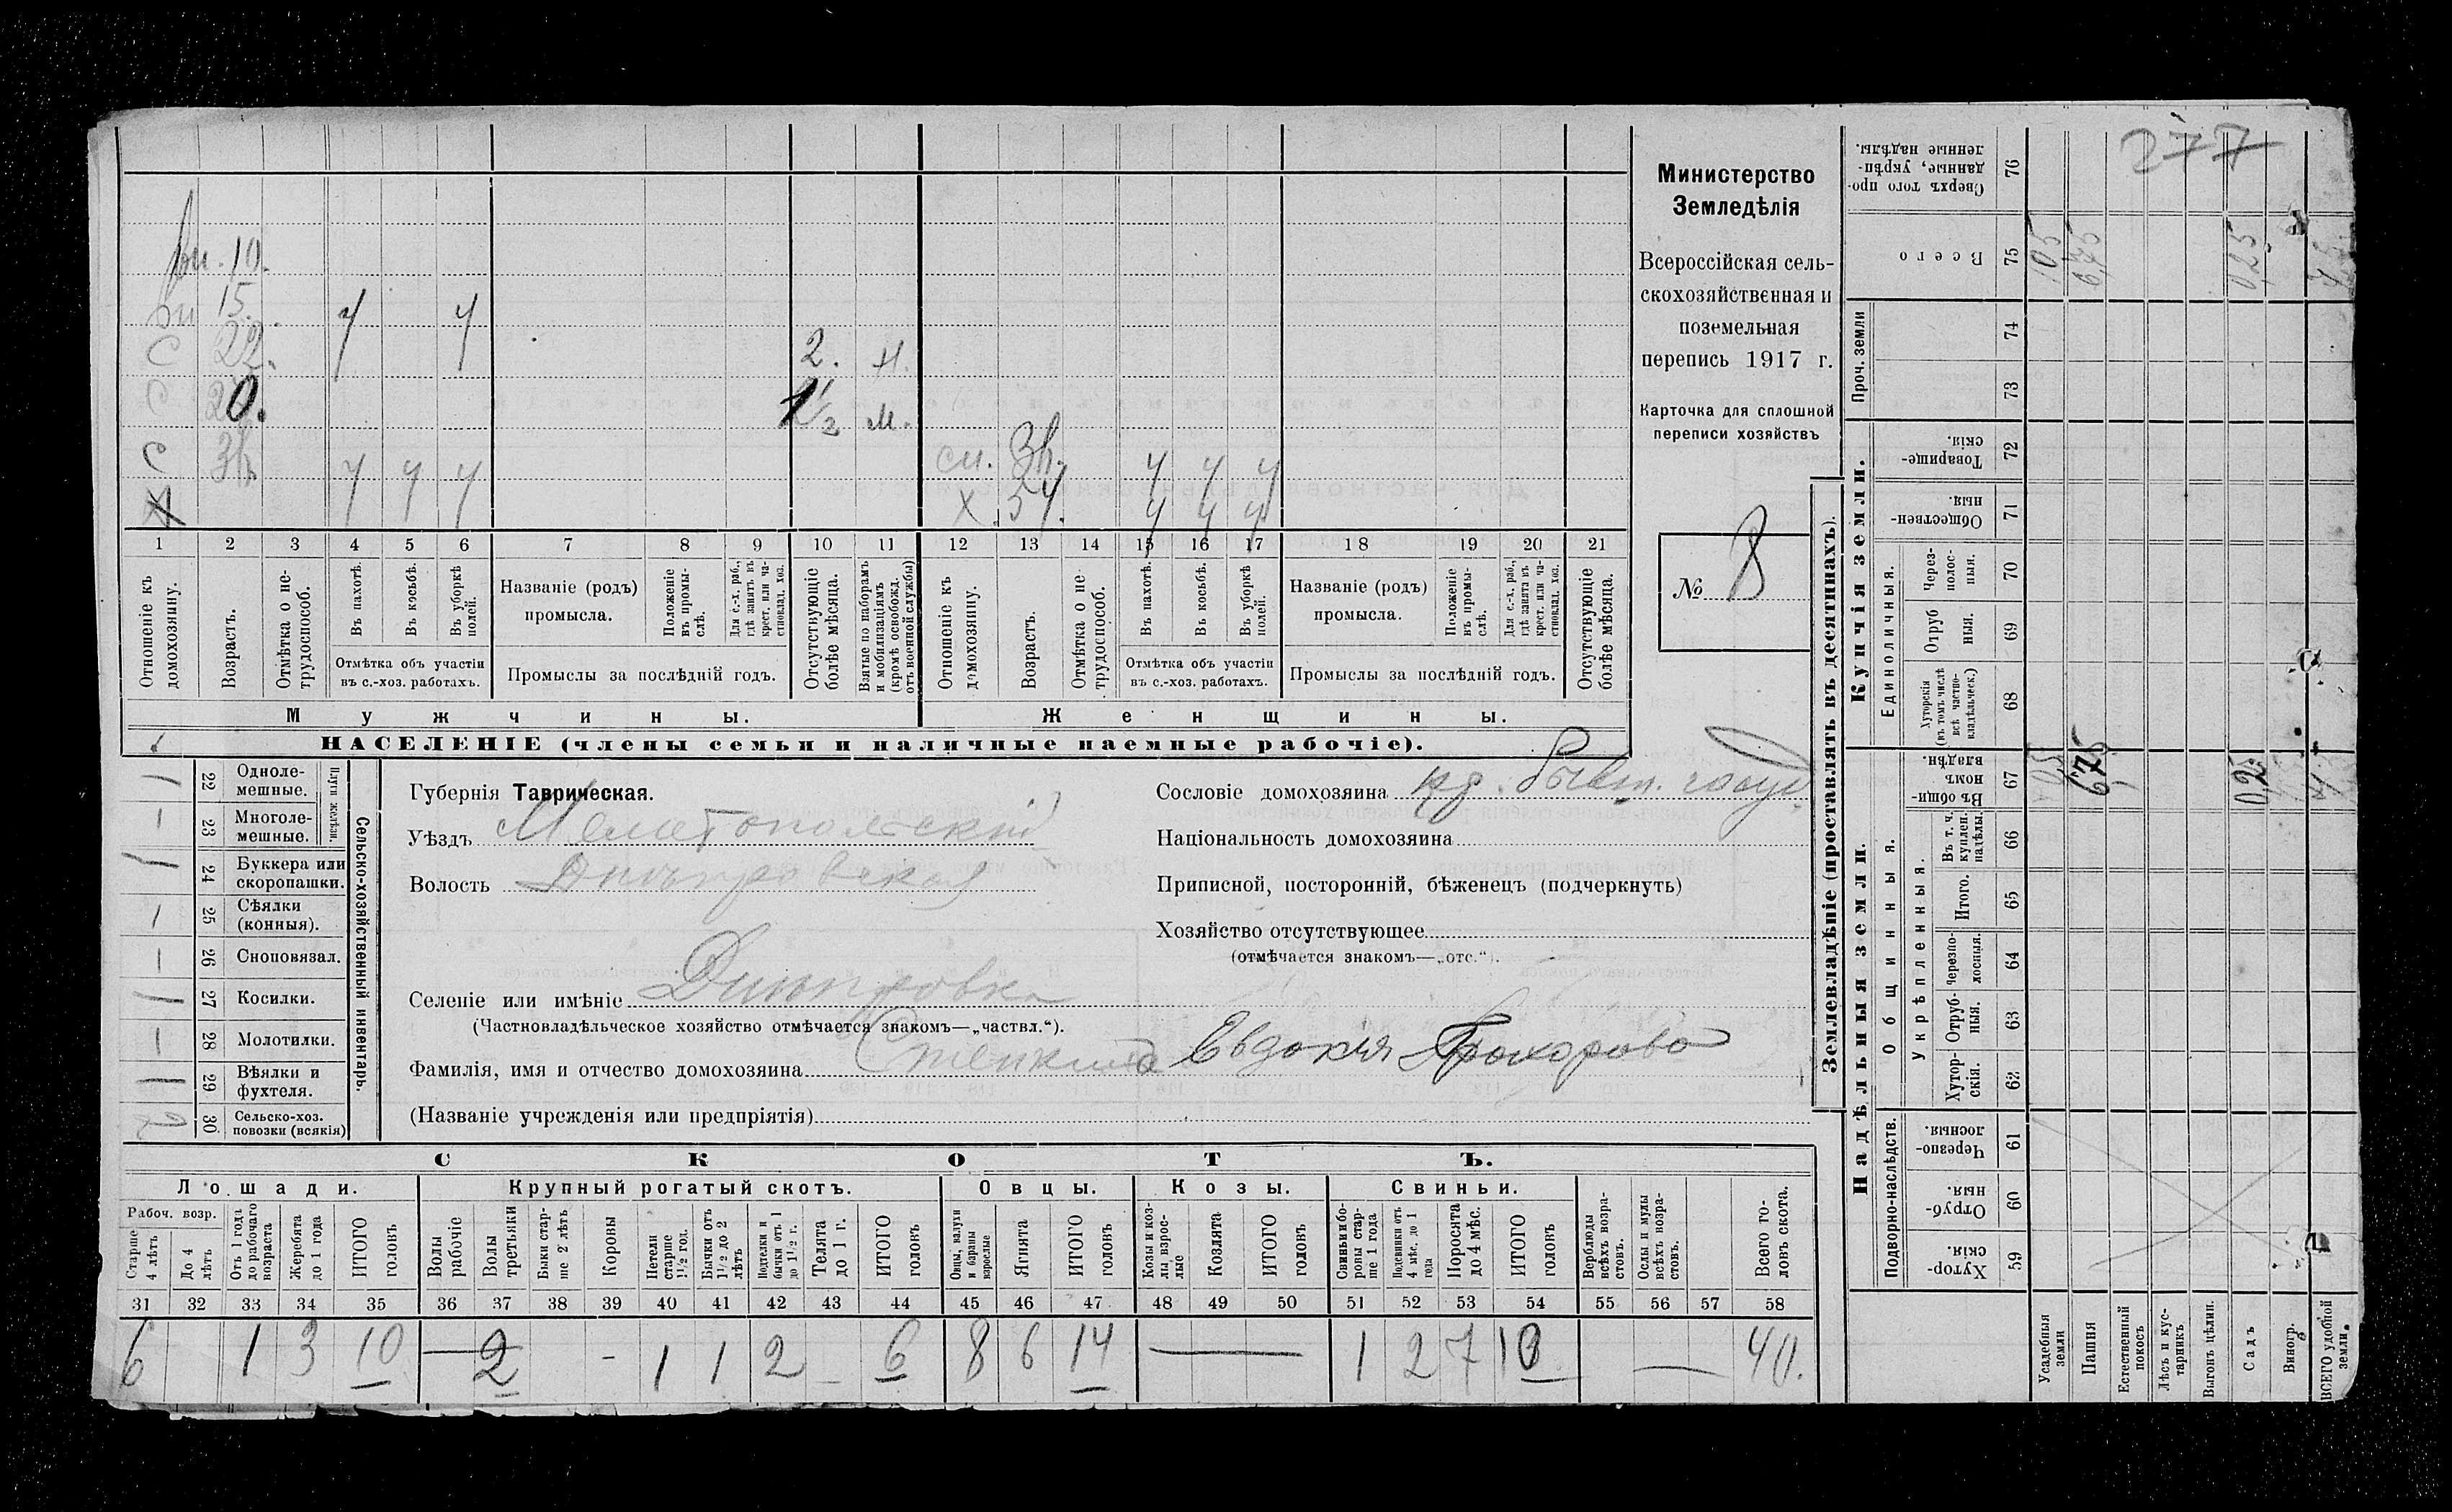 277
Министерство
Земледѣлія
Всероссійская сель-
скохозяйственная и
поземельная
перепись 1917 г.
Карточка для сплошной
переписи хозяйствъ
№ 8
вн. 10.
вн 15.
ч ч
С 22.
2. м.
С
1 1/2 м.
С
ч ч ч
сн.
ч ч ч
Х
ч ч ч
Х 54.
ч ч ч
1 2 3 4 5 6 7 8 9 10 11 12 13 14 15 16 17 18 19 20 21
Отношеніе къ домохозяину.
Возрастъ.
Отмѣтка о не-трудоспособ.
Въ пахотѣ.
Въ косьбѣ.
Въ уборкѣ полей.
Отмѣтка объ участіи
въ с.-хоз. работахъ.
Названіе (родъ)
промысла.
Положеніе въ промы-слѣ.
Для с.-х. раб., гдѣ занятъ въ крест. или ча-стновлад. хоз.
Промыслы за послѣдній годъ.
Отсутствующіе болѣе мѣсяца.
Взятые по наборамъ и мобилизаціямъ (кромѣ освобожд. отъ военной службы)
Отношеніе къ домохозяину.
Возрастъ.
Отмѣтка о не трудоспособ.
Въ пахотѣ.
Въ косьбѣ.
Въ уборкѣ полей.
Отмѣтка объ участіи
въ с.-хоз. работахъ.
Названіе (родъ)
промысла.
Положеніе въ промы-слѣ.
Для с.-х. раб., гдѣ занята въ крест. или ча-стновлад. хоз.
Промыслы за послѣдній годъ.
Отсутствующіе болѣе мѣсяца.
Мужчины.
Женщины.
НАСЕЛЕНІЕ (члены семьи и наличные наемные рабочіе).
Сельско-хозяйственный инвентарь.
Плуги желѣзн.
22 Одноле-
мешные.
23 Многоле-
мешные.
24 Буккера или
скоропашки.
25 Сѣялки
(конныя).
26 Сноповязал.
27 Косилки.
28 Молотилки.
29 Вѣялки и
фухтеля.
30 Сельско-хоз.
повозки (всякія)
Губернія Таврическая.
Уѣздъ Мелитопольскій
Волость Днѣпровская
Селеніе или имѣніе Днѣпровка
(Частновладѣльческое хозяйство отмѣчается знакомъ—„частвл.“).
Фамилія, имя и отчество домохозяина Евдокія Прохорова
(Названіе учрежденія или предпріятія)
Сословіе домохозяина кр. бывш. госуд
Національность домохозяина
Приписной, посторонній, бѣженецъ (подчеркнуть)
Хозяйство отсутствующее
(отмѣчается знакомъ—„отс.“).
СКОТЪ.
Лошади.
Крупный рогатый скотъ.
Овцы.
Козы.
Свиньи.
Рабоч. возр.
Старше 4 лѣтъ
До 4 лѣтъ
Отъ 1 года до рабочаго возраста
Жеребята до 1 года
ИТОГО головъ
Волы рабочіе
Волы третьяки
Быки стар-ше 2 лѣтъ
Коровы
Петели старше 1 1/2 год.
Бычки отъ 1 1/2 до 2 лѣтъ
Подтелки и бычки отъ 1 до 1 1/2 г.
Телята до 1 г.
ИТОГО головъ
Овцы, валухи и бараны взрослые
Ягнята
ИТОГО головъ
Козы и коз-лы, взрос-лые
Козлята
ИТОГО головъ
Свиньи и бо-ровы стар-ше 1 года
Подсвинки отъ 4 мѣс. до 1 года
Поросята до 4 мѣс.
ИТОГО головъ
Верблюды всѣхъ возра-стовъ.
Ослы и мулы всѣхъ возра-стовъ.
Всего го-ловъ скота.
31 32 33 34 35 36 37 38 39 40 41 42 43 44 45 46 47 48 49 50 51 52 53 54 55 56 57 58
6 1 3 10 — 2 - 1 1 2 6 8 6 14 — 1 2 7 10 — 40.
Землевладѣніе (проставлять въ десятинахъ).
Надѣльныя земли.
Купчія земли.
Проч. земли
Подворно-наслѣдств.
Общинныя.
Укрѣпленныя.
Единоличныя.
Сверхъ того про-данные, укрѣп-ленные надѣлы. 76
Всего 75
74
73
Товарище-скія. 72
Обществен-ныя. 71
Через-полос-ныя. 70
Отруб ныя. 69
Хуторскія (въ томъ числѣ всѣ частно-владѣльческ.) 68
Въ общи-номъ владѣн. 67
Въ т. ч. куплен. надѣлы. 66
Итого. 65
Черезпо-лосныя. 64
Отруб-ныя. 63
Хутор-скія. 62
Черезпо-лосныя. 61
Отруб-ныя. 60
Хутор-скія. 59
6,75
Усадебныя земли
Пашня
Естественный покосъ
Лѣсъ и кус-тарникъ
Выгонъ цѣлин.
Садъ
Виногр.
ВСЕГО удобной земли.